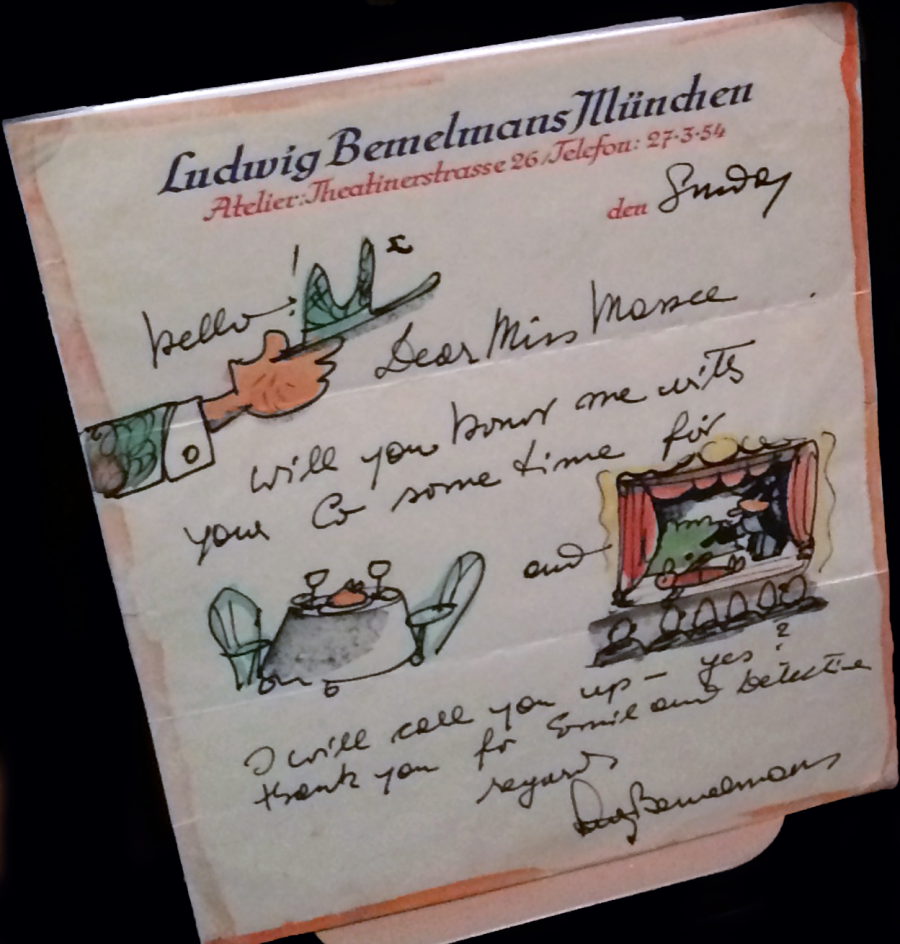 Ludwig Bemelmans München
Atelier: Theatinerstrasse 26 / Telefon: 27·3·54
den Sunday
hello !
Dear Miss Massee
will you honor me with
your Co some time for
and
?
I will call you up – yes
thank you for Emil and Detective
regards
Ludwig Bemelmans